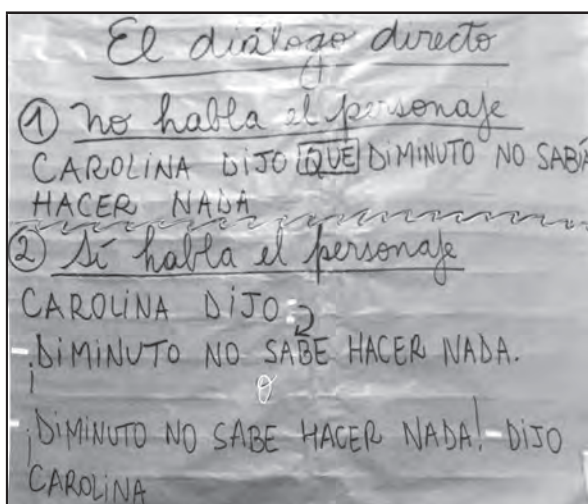 El diálogo directo
① no habla el personaje
CAROLINA DIJO QUE DIMINUTO NO SABÍA
HACER NADA
② Sí habla el personaje
CAROLINA DIJO:
- DIMINUTO NO SABE HACER NADA.
¡
o
- ¡DIMINUTO NO SABE HACER NADA! - DIJO
CAROLINA